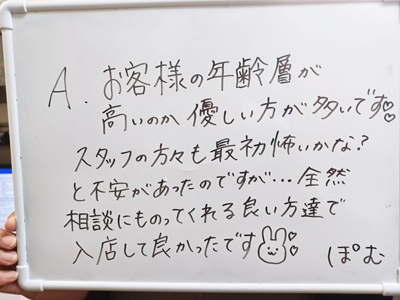 A. お客様の年齢層が
高いのか優しい方が多いです♡♡
スタッフの方々も最初怖いかな?
と不安があったのですが…全然
相談にものってくれる良い方達で
入店して良かったです♡♡
ぽむ